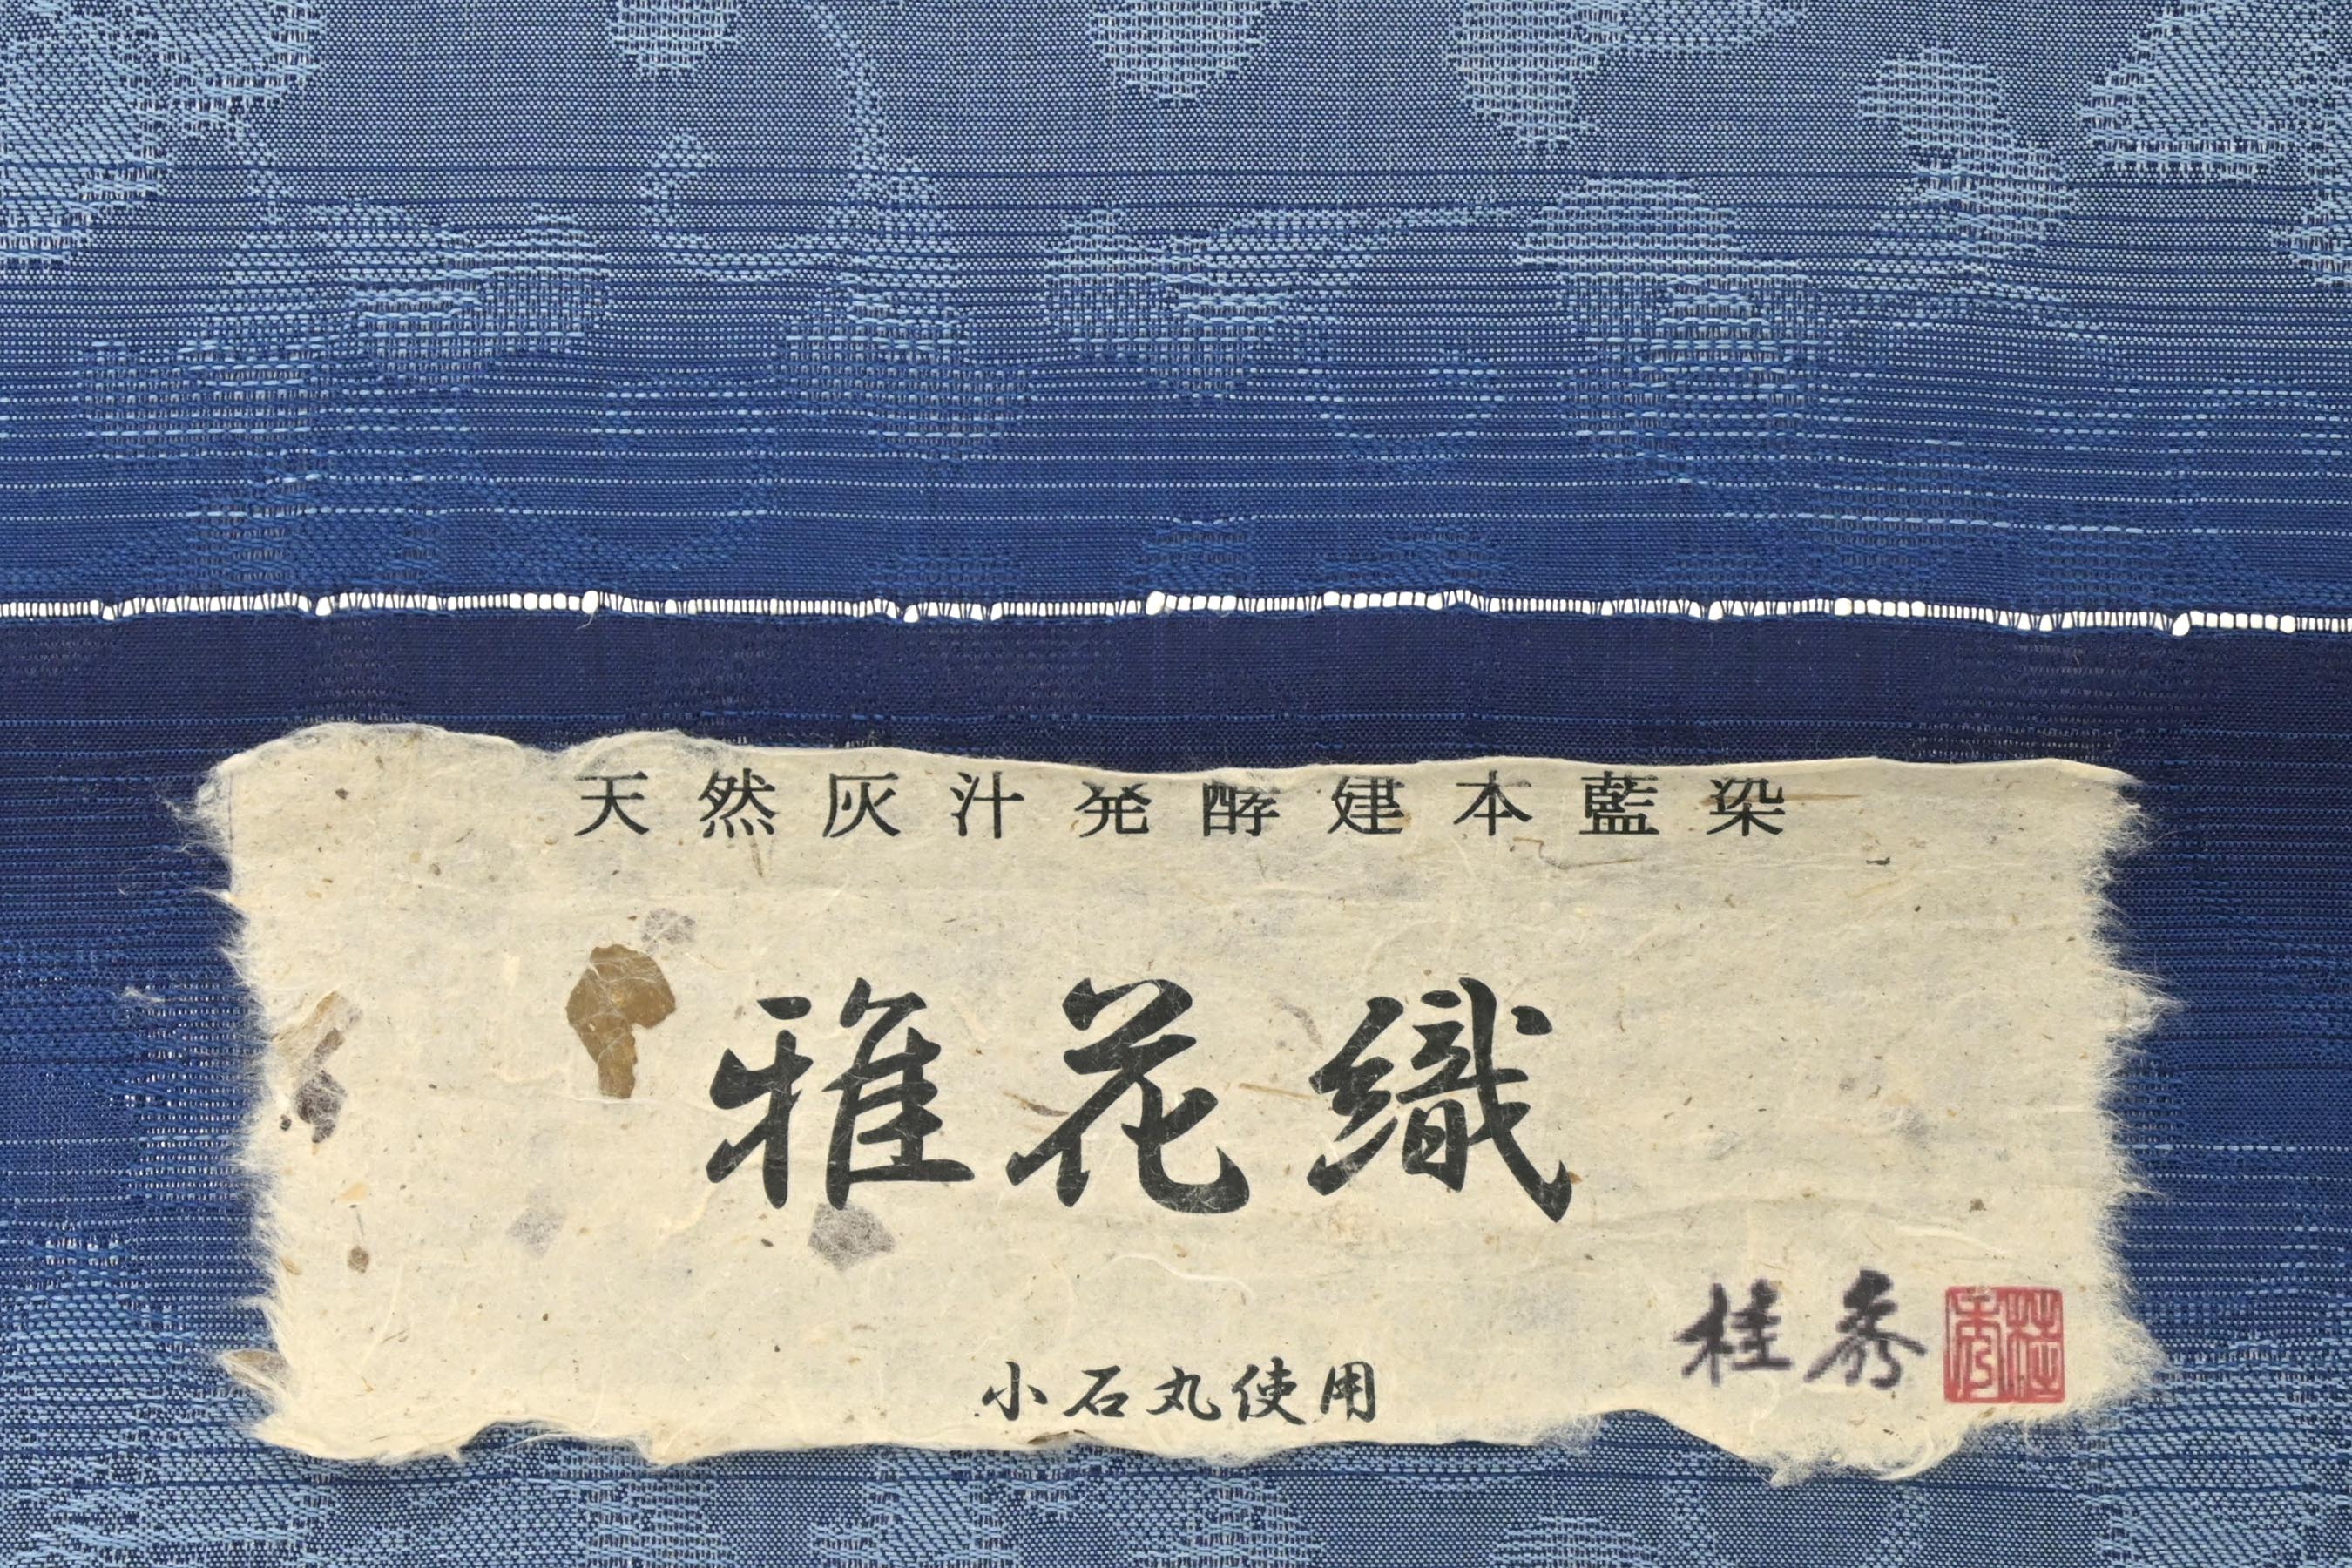 天然灰汁発酵建本藍染
雅花織
桂秀
小石丸使用
桂秀